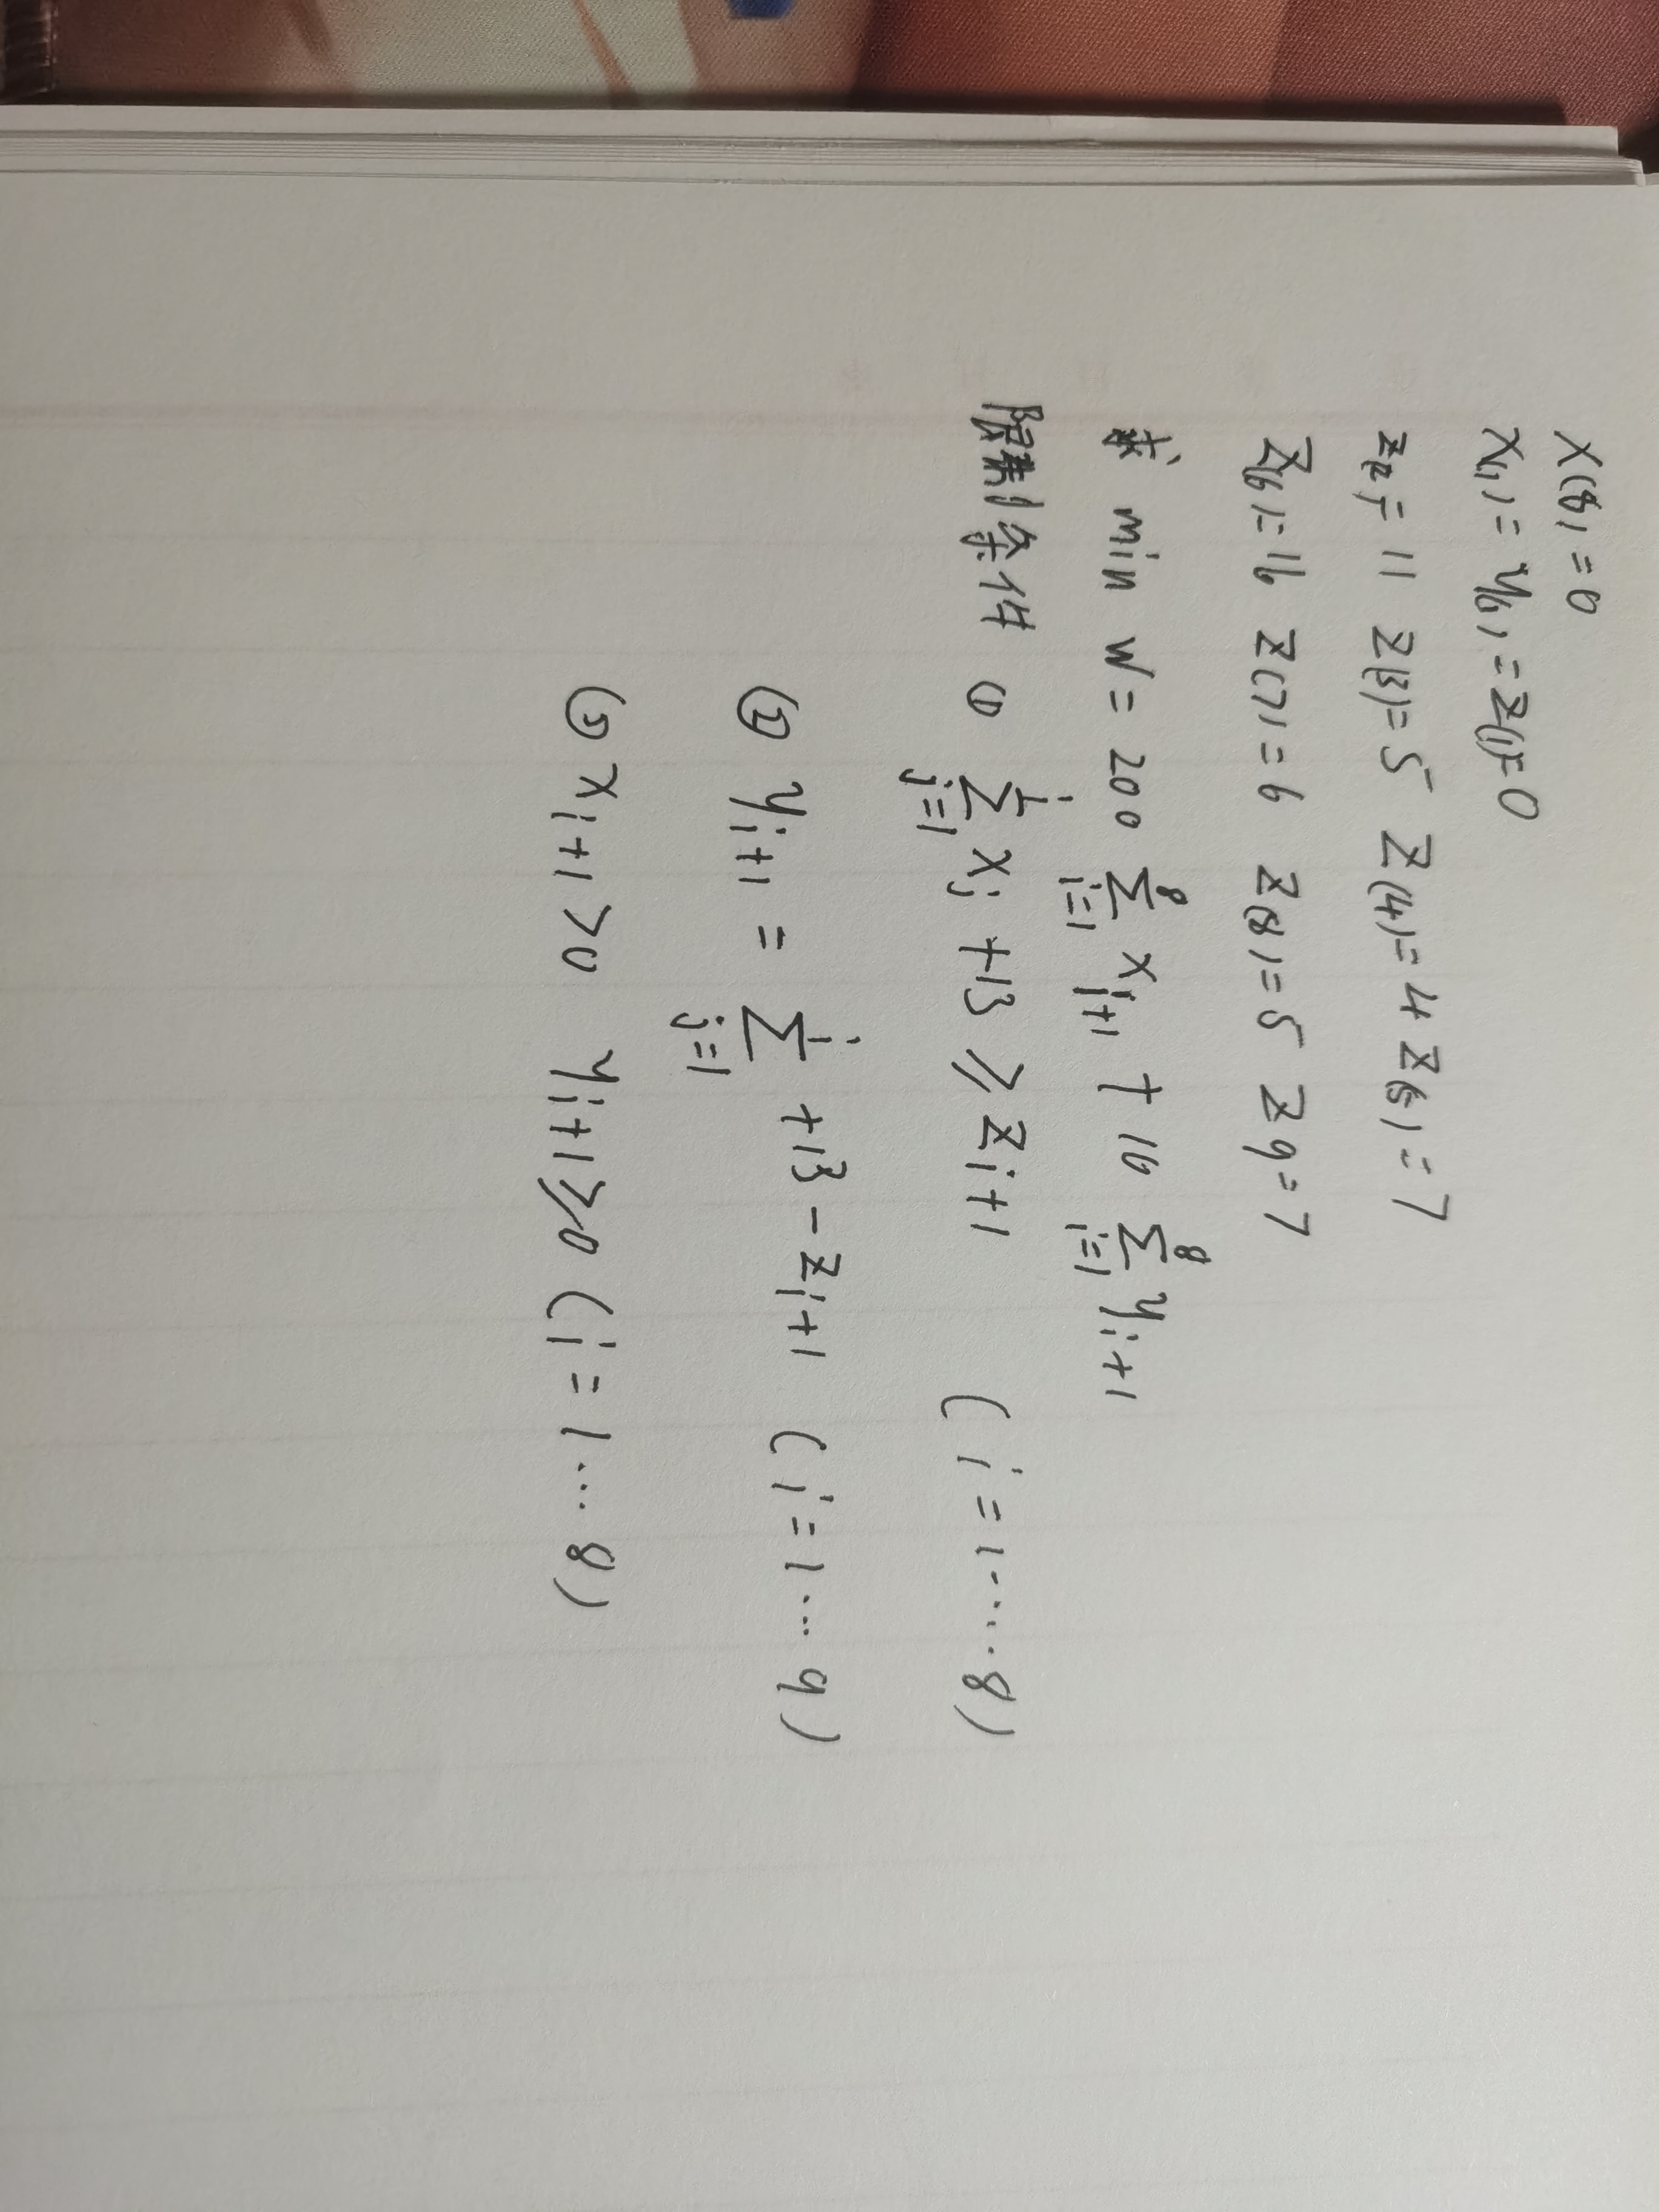 X(8)=0
X(1)=y(1)=Z(1)=0
Z2=11 Z(3)=5 Z(4)=4 Z(5)=7
Z(6)=16 Z(7)=6 Z(8)=5 Z9=7
求 min W = 200 ∑_{i=1}^{8} x_{i+1} + 10 ∑_{i=1}^{8} y_{i+1}
限制条件 ① ∑_{j=1}^{i} x_j + 13 ≥ z_{i+1} (i=1....8)
② y_{i+1} = ∑_{j=1}^{i} + 13 - z_{i+1} (i=1...9)
③ x_{i+1}>0 y_{i+1}≥0 (i=1...8)